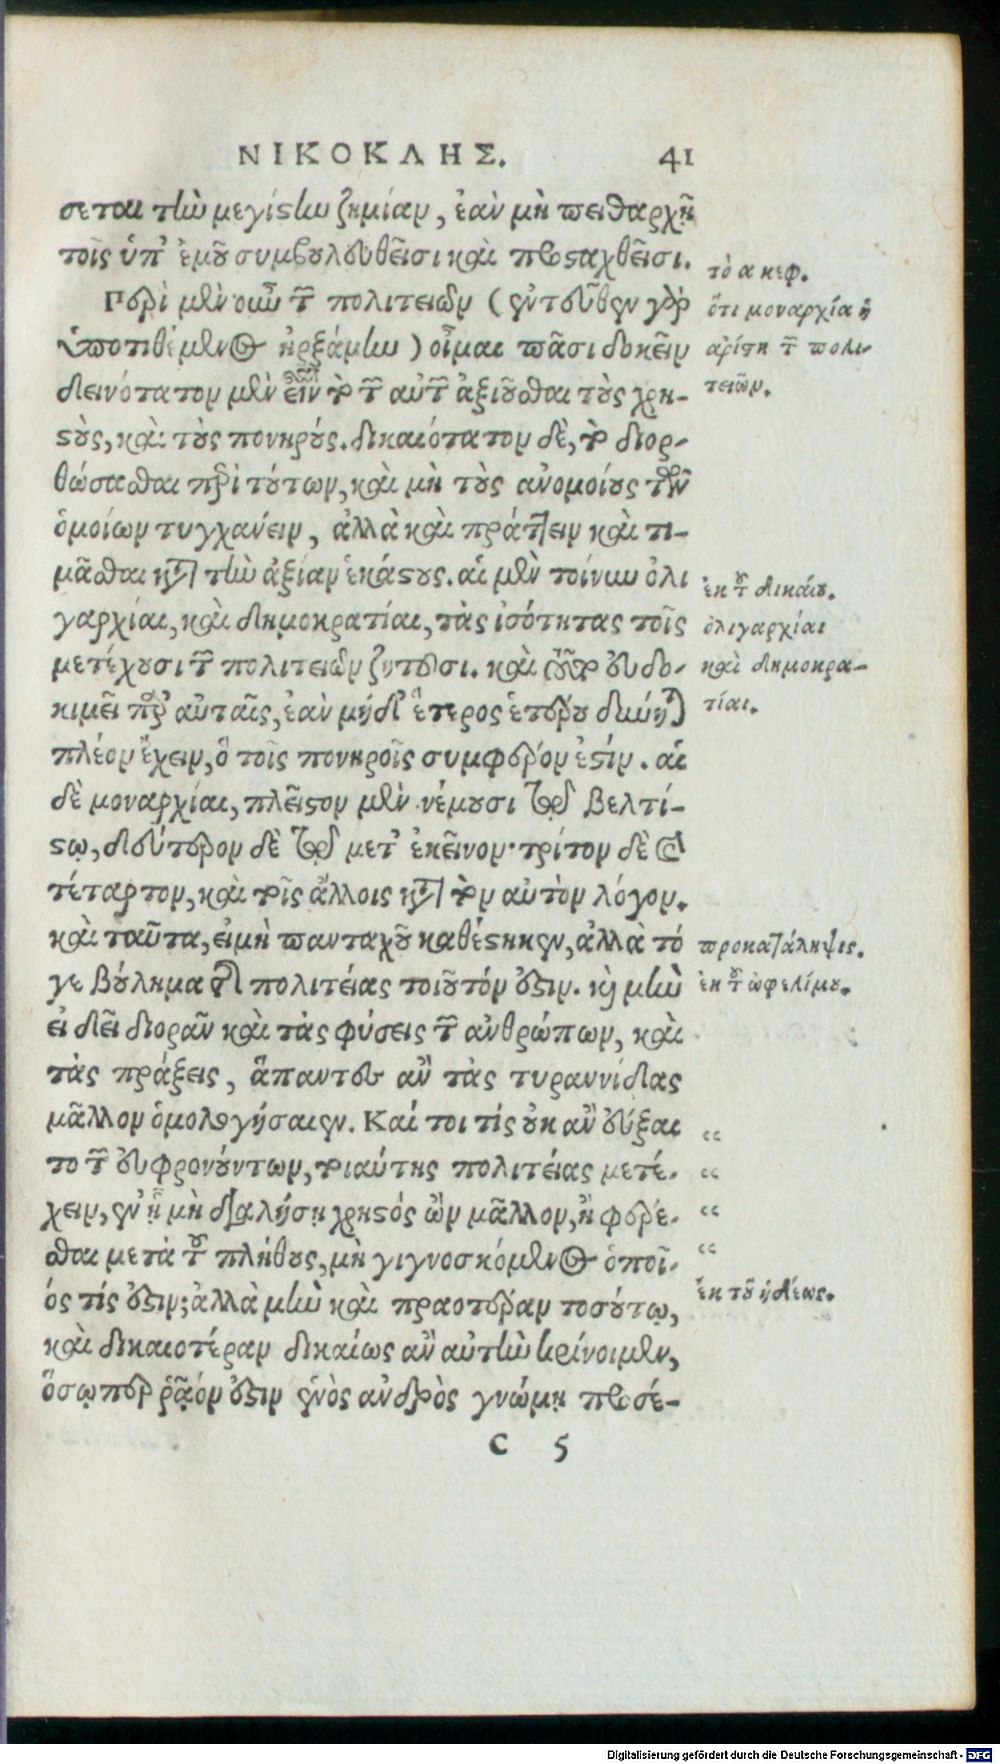 ΝΙΚΟΚΛΗΣ. 41
σεται τὴν μεγίστην ζημίαν, ἐὰν μὴ πειθαρχῇ
τοῖς ὑπ' ἐμοῦ συμβουλευθεῖσι καὶ προσταχθεῖσι.
Περὶ μὲν οὖν τῶν πολιτειῶν (ἐντεῦθεν γὰρ
ὑποτιθέμενος ἠρξάμην) οἶμαι πᾶσι δοκεῖν
δεινότατον μὲν εἶναι τὸ τῶν αὐτῶν ἀξιοῦσθαι τοὺς χρη-
στοὺς, καὶ τοὺς πονηρούς. δικαιότατον δὲ, τὸ διορ-
θώσασθαι περὶ τούτων, καὶ μὴ τοὺς ἀνομοίους τῶν
ὁμοίων τυγχάνειν, ἀλλὰ καὶ πράττειν καὶ τι-
μᾶσθαι κατὰ τὴν ἀξίαν ἑκάστους. αἱ μὲν τοίνυν ὀλι
γαρχίαι, καὶ δημοκρατίαι, τὰς ἰσότητας τοῖς
μετέχουσι τῶν πολιτειῶν ζητοῦσι. καὶ τοῦτο εὐδο-
κιμεῖ παρ' αὐταῖς, ἐὰν μηδὲ ἕτερος ἑτέρου δύνηται
πλέον ἔχειν, ὃ τοῖς πονηροῖς συμφέρον ἐστίν. αἱ
δὲ μοναρχίαι, πλεῖστον μὲν νέμουσι τῷ βελτί-
στῳ, δεύτερον δὲ τῷ μετ' ἐκεῖνον· τρίτον δὲ καὶ
τέταρτον, καὶ τοῖς ἄλλοις κατὰ τὸν αὐτὸν λόγον.
καὶ ταῦτα, εἰ μὴ πανταχοῦ καθέστηκεν, ἀλλὰ τό
γε βούλημα τῆς πολιτείας τοιοῦτόν ἐστιν. καὶ μὴν
εἰ δεῖ διορᾶν καὶ τὰς φύσεις τῶν ἀνθρώπων, καὶ
τὰς πράξεις, ἅπαντες ἂν τὰς τυραννίδας
μᾶλλον ὁμολογήσαιεν. Καί τοι τίς οὐκ ἂν εὔξαι
το τῶν εὐφρονούντων, τοιαύτης πολιτείας μετέ-
χειν, ἐν ᾗ μὴ διαλήσῃ χρηστός ὢν μᾶλλον, ἢ φέρε-
σθαι μετὰ τοῦ πλήθους, μὴ γιγνοσκόμενος ὁποῖ-
ός τίς ἐστιν; ἀλλὰ μὴν καὶ πραοτέραν τοσούτῳ,
καὶ δικαιοτέραν δικαίως ἂν αὐτὴν κρίνοιμεν,
ὅσῳπερ ῥᾷόν ἐστιν ἑνὸς ἀνδρὸς γνώμῃ προσέ-
C 5
τὸ α κεφ.
ὅτι μοναρχία ἡ
ἀρίστη τῶν πολι-
τειῶν.
ἐκ τοῦ δικαίου.
ὀλιγαρχίαι
καὶ δημοκρα-
τίαι.
προκατάληψις.
ἐκ τοῦ ὠφελίμου.
“
“
“
“
ἐκ τοῦ ἡδέως.
Digitalisierung gefördert durch die Deutsche Forschungsgemeinschaft - DFG